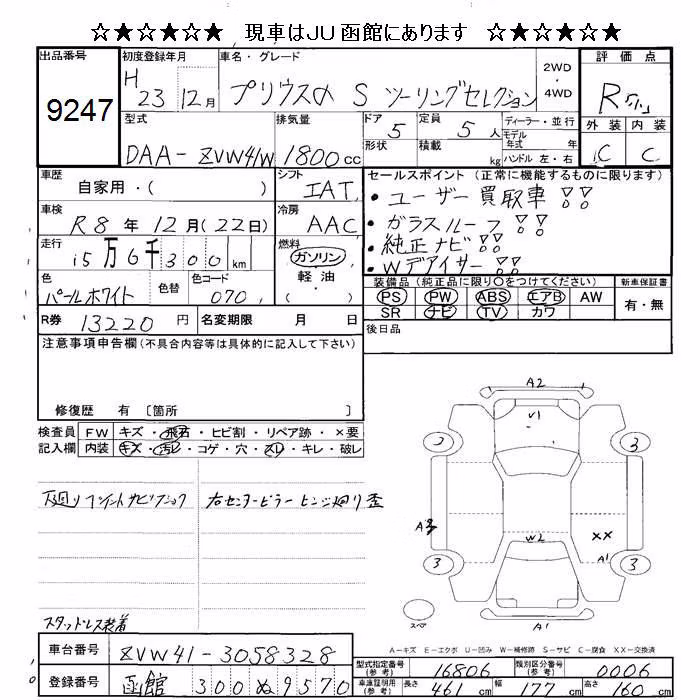 ☆★☆★☆★ 現車はJU函館にあります ☆★☆★☆★
出品番号 初度登録年月 車名・グレード 2WD ・ 4WD 評価点
9247 H 23 12月 プリウスα S ツーリングセレクション R
型式 排気量 ドア 5 定員 5人 ディーラー・並行 外装 内装
DAA-ZVW41W 1800cc 形状 積載 kg モデル年式 年 ハンドル 左・右 C C
車歴 自家用・( ) シフト IAT セールスポイント (正常に機能するものに限ります)
・ユーザー買取車!!
車検 R8年12月(22日) 冷房 AAC ・ガラスルーフ!!
走行 15万6千300km 燃料 ガソリン・軽油・( ) ・純正ナビ!!
・Wデアイサー!!
色 パールホワイト 色替 色コード 070 装備品(純正品に限り○をつけてください) 新車保証書
PS PW ABS エアB AW 有・無
R券 13220円 名変期限 月 日 SR ナビ TV カワ
注意事項申告欄(不具合内容等は具体的に記入して下さい) 後日品
修復歴 有 [箇所 ]
検査員 FW キズ・飛石・ヒビ割・リペア跡・×要
記入欄 内装 キズ・汚レ・コゲ・穴・スレ・キレ・破レ
下廻り フロントナビブロック 右センターピラーヒンジ廻り歪
A2
V1
3 3
W2 XX
A1
3 3
スペア A1
スタッドレス装着
A-キズ E-エクボ U-凹み W-補修跡 S-サビ C-腐食 XX-交換済
車台番号 ZVW41-3058328 型式指定番号(参考) 16806 類別区分番号(参考) 0006
登録番号 函館 300 ぬ 9570 車庫証明用(参考) 長さ 461cm 幅 177cm 高さ 160cm